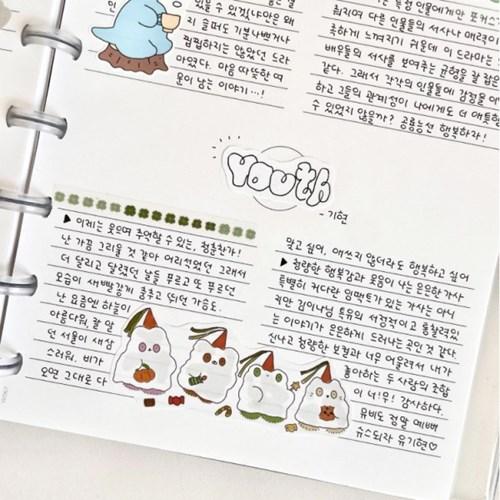 있을 수 있을 것 같았던은 왜
지 슬퍼도 기분 나쁘거나
찝찝하지는 않았던 드라
마였다. 마음 따뜻한 여
운이 남는 이야기…!
럼지며 다른 인물들의 서사나 매력이
족하게 느껴지기 쉬운데 이 드라마는
배우들의 서사를 보여주는 균형을 잘 잡은
같다. 그래서 각각의 인물들에 감정을 이
하고 그들의 관계성이 나에게도 더 애틋할
수 있었지 않을까? 공룡능선 행복하자!
youth
- 기현
▶ 이제는 웃으며 추억할 수 있는, 청춘찬가!
난 가끔 그리울 것 같아 어리석었던 그래서
더 달리고 달렸던 날들 푸르고 또 푸르던
모습이 새빨갛게 춤추고 띄던 가슴도.
난 요즘엔 하늘이
아름다워 잘 알
던 서울이 새삼
스러워. 비가
오면 그대로 다
맞고 싶어, 애쓰지 않더라도 행복하고 싶어
▶ 청량한 행복감과 웃음이 나는 은은한 가사
특별히 커다란 임팩트가 있는 가사는 아니
지만 김이나님 특유의 서정적이고 통찰력있
는 이야기가 은은하게 드러나는 곡인 것 같다.
신나고 청량한 보컬과 너무 어울려서 내가
좋아하는 두 사람의 조합
이 너!무! 감사하다.
뮤비도 정말 예뻐
유스되라 유기현♡